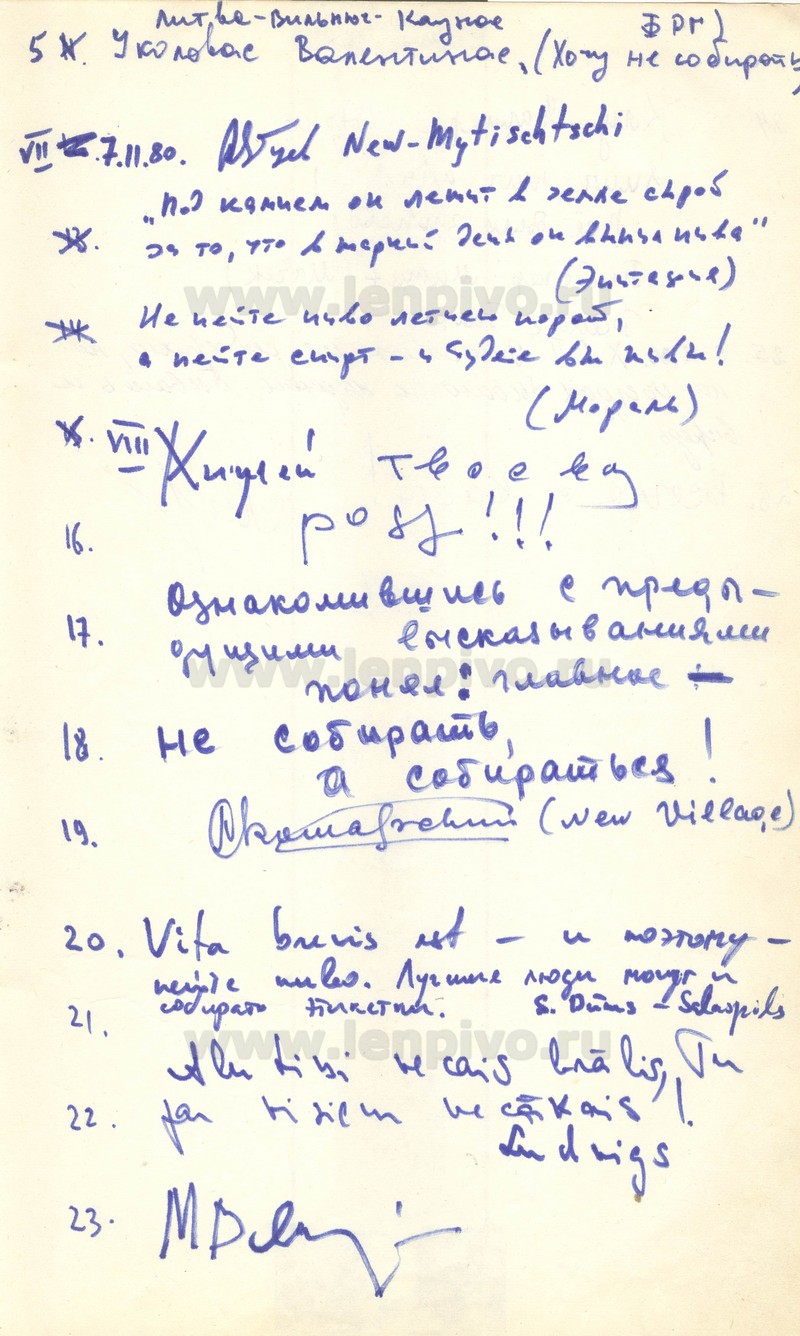 Литва-Вильнюс-Каунас ФРГ)
5 Уколовас Валентинас, (Хочу не собирать,
VII 7.11.80. New-Mytischtschi
„Под камнем он лежит в земле сырой
за то, что в жаркий день он выпил пива"
13. (Эпитафия)
www.lenpivo.ru
14. Не пейте пиво летнею порой,
а пейте спирт – и будете вы живы!
(Мораль)
15. VIII Жигулей твоему
роду!!!
16.
Ознакомившись с преды-
17. дущими высказываниями
понял: главное –
www.lenpivo.ru
18. не собирать,
а собираться!
19. (New Village)
20. Vita brevis est – и поэтому –
пейте пиво. Лучшие люди могут и
21. собирать этикетки. S. Dūms – Salaspils
www.lenpivo.ru
Alu tisi vecais brālis, Tu
22. jau visiem vecākais!
Ludvigs
23.